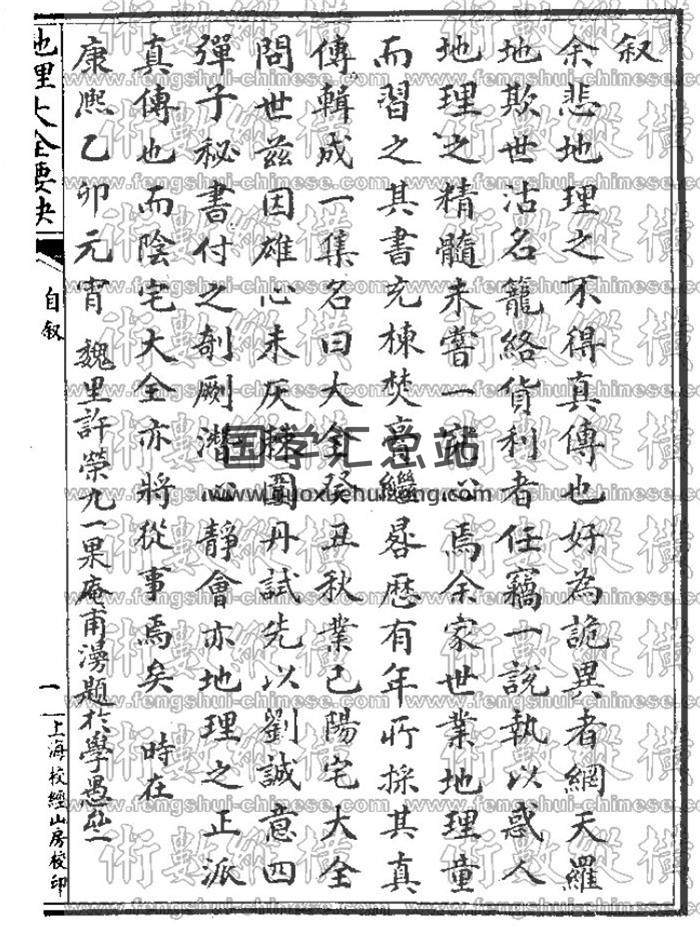 叙
余悲地理之不得真傳也好為詭異者網天羅
地欺世沽名籠絡貨利者任竊一說執以惑人
地理之精髓未嘗一究心焉余家世業地理童
而習之其書充棟焚膏繼晷歷有年所採其真
傳輯成一集名曰大全癸丑秋業已陽宅大全
問世兹因雄心未灰棘圍再試先以劉誠意四
彈子秘書付之剞劂潛心靜會亦地理之正派
真傳也而陰宅大全亦將從事焉矣 時在
康熙乙卯元宵 魏里許榮九一果庵甫漫題於學愚
地理大全要訣
自叙
一
上海校經山房校印
国学汇总站
www.guoxuehuizong.com
術數縱橫
www.fengshui-chinese.com